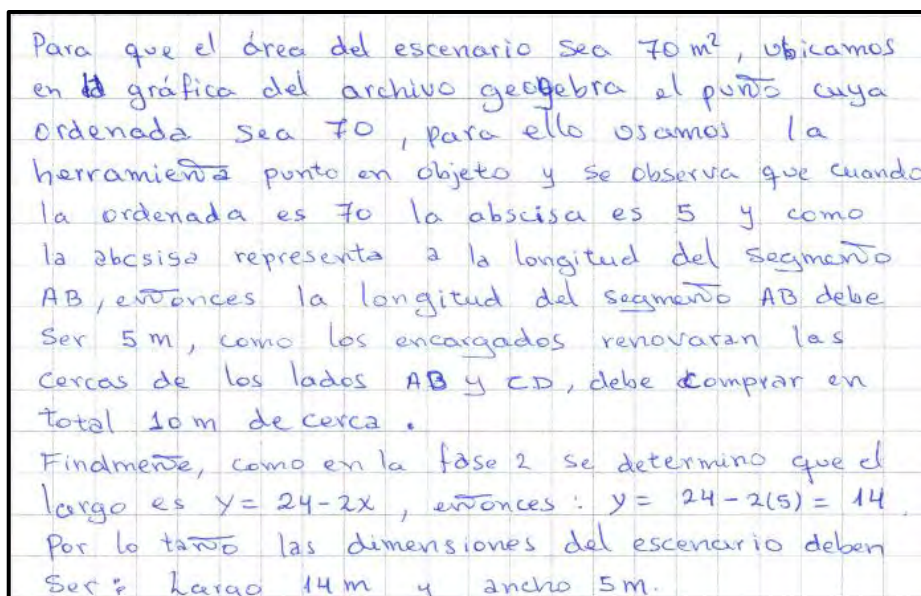 Para que el área del escenario sea 70 m², ubicamos
en la gráfica del archivo geogebra el punto cuya
ordenada sea 70, para ello usamos la
herramienta punto en objeto y se observa que cuando
la ordenada es 70 la abscisa es 5 y como
la abcsisa representa a la longitud del segmento
AB, entonces la longitud del segmento AB debe
ser 5 m, como los encargados renovaran las
cercas de los lados AB y CD, debe comprar en
total 10 m de cerca.
Finalmente, como en la fase 2 se determino que el
largo es y = 24 - 2x, entonces: y = 24 - 2(5) = 14
Por lo tanto las dimensiones del escenario deben
ser: Largo 14 m y ancho 5 m.